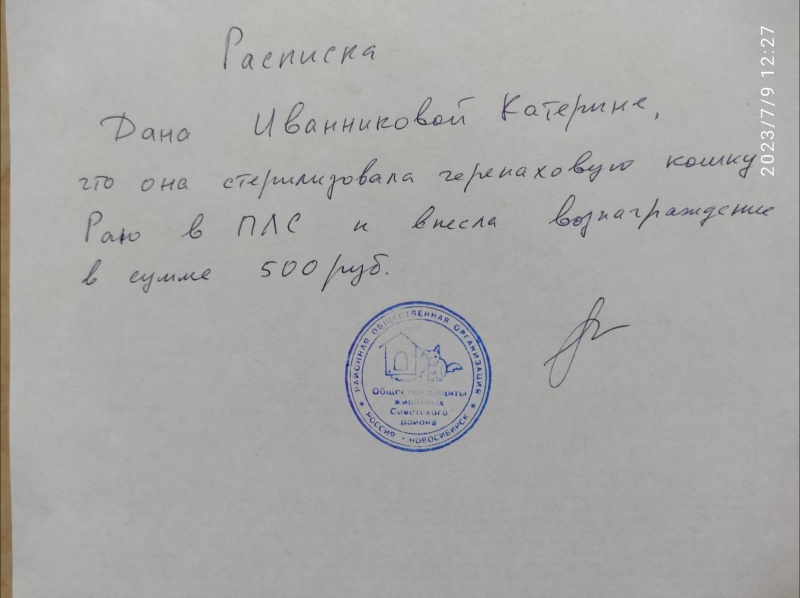 Расписка
Дана Иванниковой Катерине,
что она стерилизовала черепаховую кошку
Раю в ПЛС и внесла вознаграждение
в сумме 500 руб.
РАЙОННАЯ ОБЩЕСТВЕННАЯ ОРГАНИЗАЦИЯ
Общество защиты
животных
Советского
района
РОССИЯ • НОВОСИБИРСК
2023/7/9 12:27